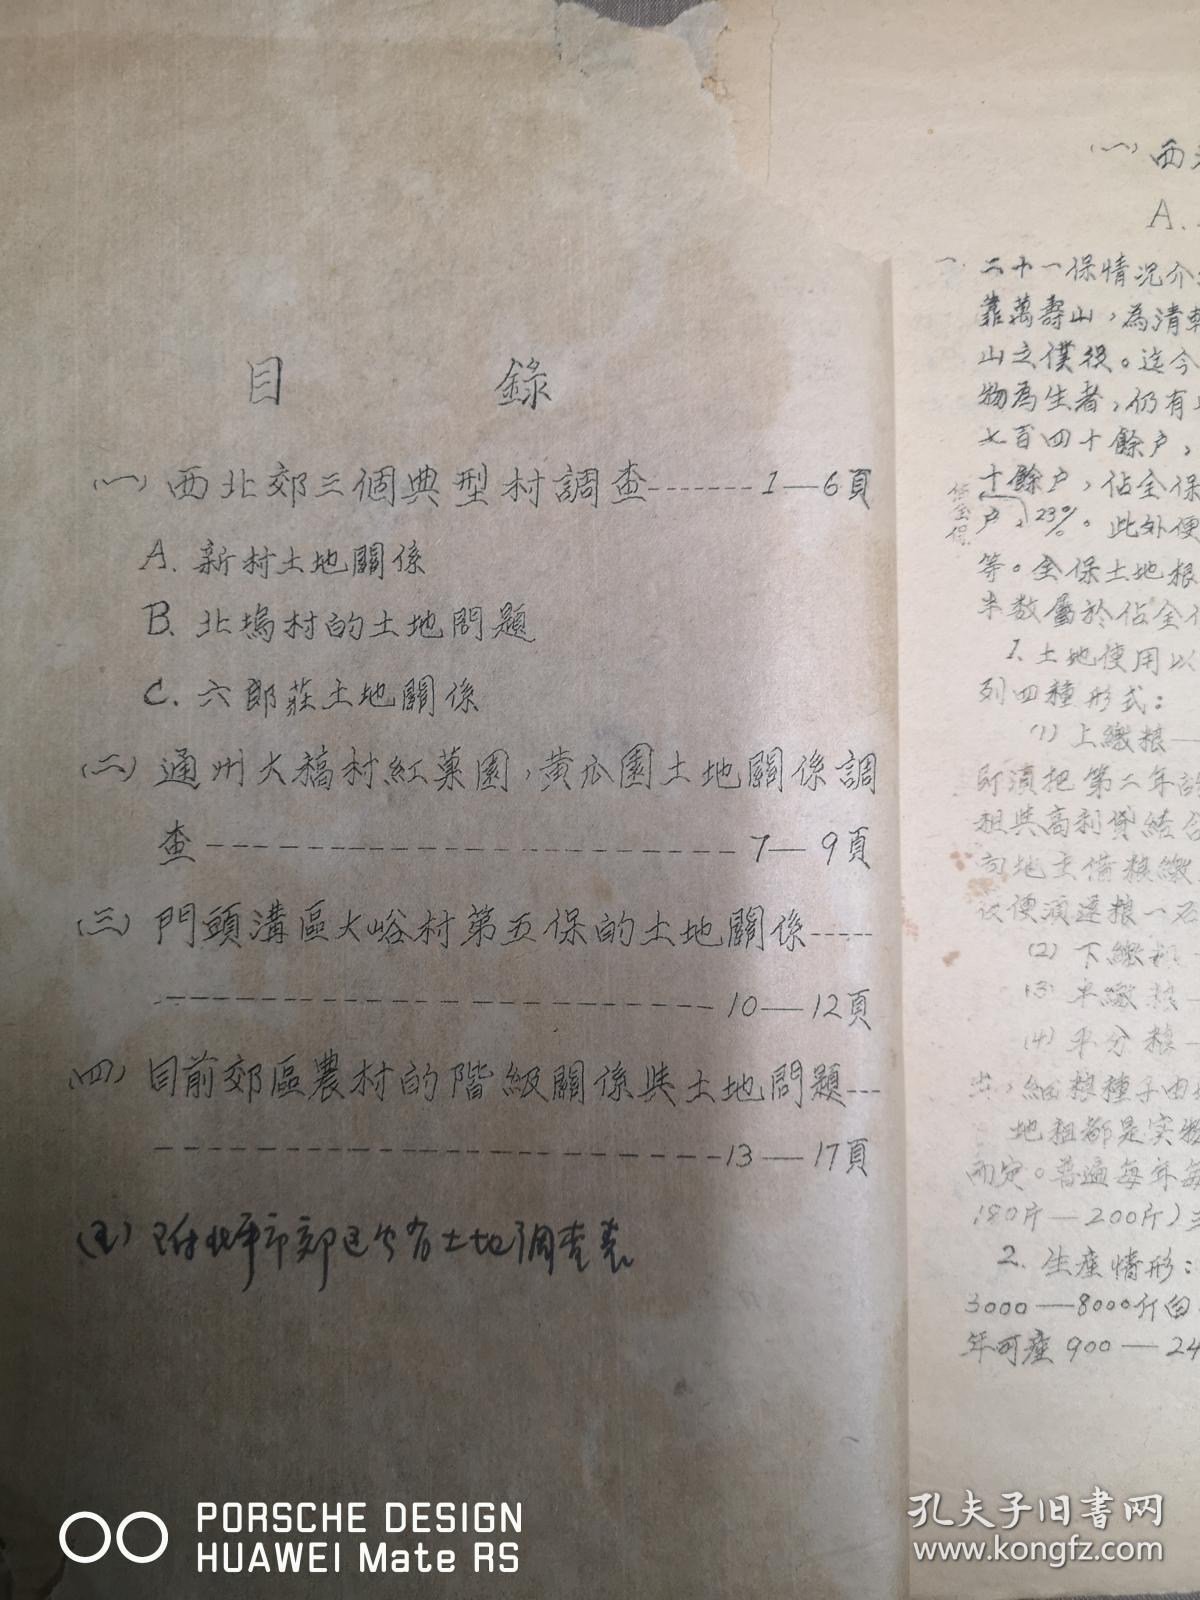 目 錄
(一) 西北郊三個典型村調查-------1—6頁
A. 新村土地關係
B. 北塢村的土地問題
C. 六郎莊土地關係
(二) 通州大稿村紅菓園，黄瓜園土地關係調
查------------------------7—9頁
(三) 門頭溝區大峪村第五保的土地關係-----
------------------------10—12頁
(四) 目前郊區農村的階級關係與土地問題---
------------------------13—17頁
(五) 附北平市郊已分省土地調查表
(一) 西
A.
一. 二十一保情况介
靠萬壽山，為清朝
山之僕役。迄今
物為生者，仍有
七百四十餘户，
十餘户，佔全保
佔全保
户，23%。此外便
等。全保土地根
半数屬於佔全
1. 土地使用以
列四種形式：
(1) 上繳粮—
即須把第二年的
租與高利貸結合
向地主借粮繳
次便須還粮一石
(2) 下繳租
(3) 半繳粮—
(4) 平分粮—
出，細粮種子由
地租都是实物
而定。普遍每年每
180斤—200斤)
2. 生産情形：
3000—8000斤白
年可産900—24
PORSCHE DESIGN
HUAWEI Mate RS
孔夫子旧書网
www.kongfz.com